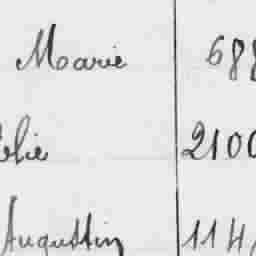 Marie 688
elie 2100
Augustin 114